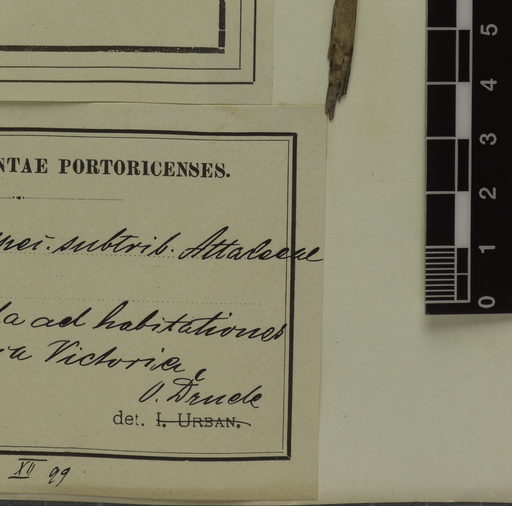 NTAE PORTORICENSES.
subtrib. Attaleae
ad habitationes
Victoria,
O. Drude
det. I. URBAN.
XII 99
5
4
3
2
1
0